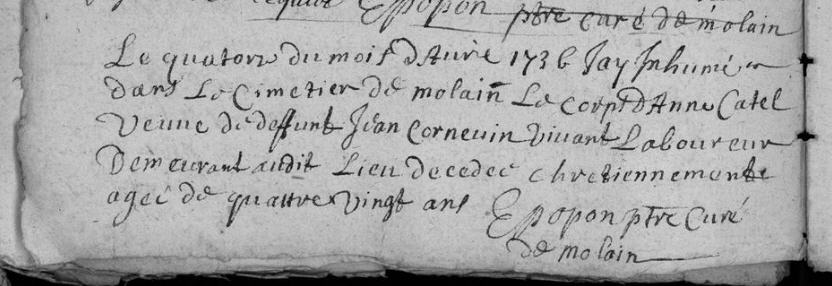 Eppopon ptre curé de molain
Le quatorz du mois d'Avrie 1736 Jay Inhumé
dans Le Cimetier de molain Le corps d'Anne Catel
Veuve de deffunt Jean Cornevin vivant Laboureur
Demeurant audit Lieu decedee chretiennemente
ageé de quattre vingt ans Eppopon ptre Curé
de molain